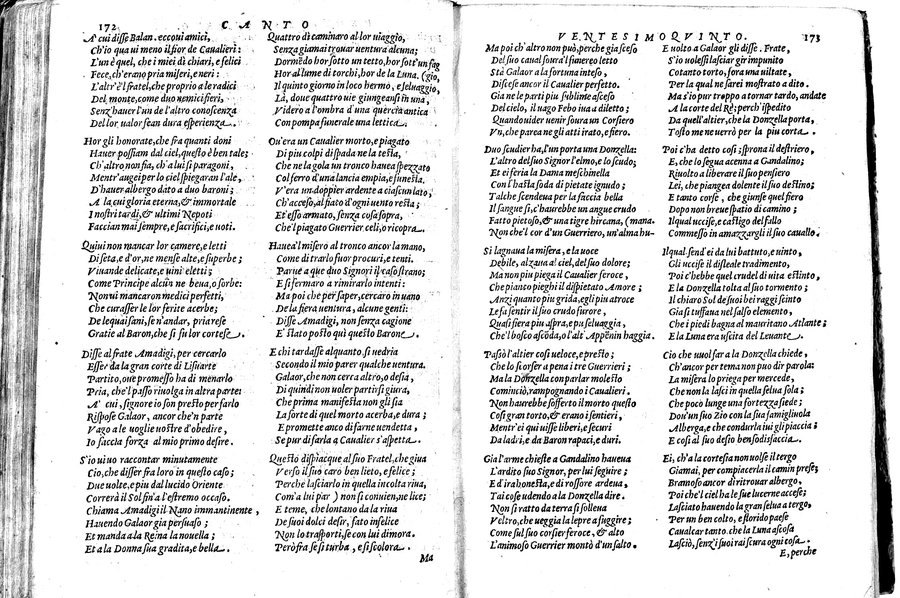 172 CANTO
A' cui disse Balan. eccoui amici,
Ch'io qua ui meno il fior de Caualieri:
L'un è quel, che i miei dì chiari, e felici
Fece, ch'erano pria miseri, e neri:
L'altr'è il fratel, che proprio a le radici
Del monte, come duo nemici fieri,
Senz'hauer l'un de l'altro conoscenza
Del lor ualor fean dura esperienza.
Hor gli honorate, che fra quanti doni
Hauer possiam dal ciel, questo è ben tale;
Ch'altro non fia, ch'a lui si paragoni,
Mentr'augei per lo ciel spiegaran l'ale,
D'hauer albergo dato a duo baroni;
A la cui gloria eterna, & immortale
I nostri tardi, & ultimi Nepoti
Faccian mai sempre, e sacrifici, e uoti.
Quiui non mancar lor camere, e letti
Di seta, e d'or, ne mense alte, e superbe;
Viuande delicate, e uini eletti;
Come Principe alcun ne beua, o sorbe:
Non ui mancaron medici perfetti,
Che curasser le lor ferite acerbe;
De lequai sani, se n'andar, pria rese
Gratie al Baron, che sì fu lor cortese.
Disse al frate Amadigi, per cercarlo
Esser da la gran corte di Lisuarte
Partito, oue promesso ha di menarlo
Pria, che'l passo riuolga in altra parte:
A' cui, signore io son presto per farlo
Rispose Galaor, ancor che'n parte
Vago a le uoglie uostre d'obedire,
Io faccia forza al mio primo desire.
S'io ui uo raccontar minutamente
Cio, che disser fra loro in questo caso;
Due uolte, e piu dal lucido Oriente
Correrà il Sol fin'a l'estremo occaso.
Chiama Amadigi il Nano immantinente,
Hauendo Galaor gia persuaso;
Et manda a la Reina la nouella;
Et a la Donna sua gradita, e bella.
Quattro dì caminaro al lor uiaggio,
Senza giamai trouar uentura alcuna;
Dormedo hor sotto un tetto, hor sott'un fag
Hor al lume di torchi, hor de la Luna. (gio,
Il quinto giorno in loco hermo, e seluaggio,
Là, doue quattro uie giungeansi in una,
Videro a l'ombra d'una quercia antica
Con pompa funerale una lettica.
Ou'era un Caualier morto, e piagato
Di piu colpi di spada ne la testa,
Che ne la gola un tronco hauea spezzato
Col ferro d'una lancia empia, e funesta.
V'era un doppier ardente a ciascun lato,
Ch'acceso, al fiato d'ogni uento resta;
Et esso armato, senza cosa sopra,
Che'l piagato Guerrier celi, o ricopra.
Hauea'l misero al tronco ancor la mano,
Come di trarlo fuor procuri, e tenti.
Parue a que duo Signori il caso strano;
E si fermaro a rimirarlo intenti:
Ma poi che per saper, cercaro in uano
De la fiera uentura, alcune genti;
Disse Amadigi, non senza cagione
E' stato posto quì questo Barone.
E chi tardasse alquanto, si uedria
Secondo il mio parer qualche uentura.
Galaor, che non cerca altro, o desia,
Di quindi non uoler partir si giura,
Che prima manifesta non gli sia
La sorte di quel morto acerba, e dura;
E promette anco di farne uendetta,
Se pur di farla a Caualier s'aspetta.
Questo dispiacque al suo Fratel, che giua
Verso il suo caro ben lieto, e felice;
Perche lasciarlo in quella incolta riua,
Com'a lui par) non si conuien, ne lice;
E teme, che lontano da la riua
De suoi dolci desir, fato infelice
Non lo trasporti, se con lui dimora.
Però fra se si turba, e si scolora.
Ma
VENTESIMOQVINTO. 173
Ma poi ch'altro non può, perche gia sceso
Del suo caual soura'l funereo letto
Stà Galaor a la fortuna inteso,
Discese ancor il Caualier perfetto.
Gia ne le parti piu sublime asceso
Del cielo, il uago Febo iua a diletto;
Quando uider uenir soura un Corsiero
Vn, che parea ne gli atti irato, e fiero.
Duo scudier ha, l'un porta una Donzella:
L'altro del suo Signor l'elmo, e lo scudo;
Et ei feria la Dama meschinella
Con l'hasta soda di pietate ignudo;
Tal che scendeua per la faccia bella
Il sangue sì, c'haurebbe un angue crudo
Fatto pietoso, & una tigre hircana, (mana.
Non che'l cor d'un Guerriero, un'alma hu-
Si lagnaua la misera, e la uoce
Debile, alzaua al ciel, del suo dolore;
Ma non piu piega il Caualier feroce,
Che pianco pieghi il dispietato Amore;
Anzi quanto piu grida, egli piu atroce
Le fa sentir il suo crudo furore,
Qual fiera piu aspra, e piu seluaggia,
Che'l bosco ascoda, o l'alt'Appenin haggia.
Passò l'altier così ueloce, e presto;
Che lo scorser a pena i tre Guerrieri;
Ma la Donzella con parlar molesto
Cominciò, rampognando i Caualieri.
Non haurebbe sofferto il morto questo
Così gran torto, & erano i sentieri,
Mentr'ei qui uisse liberi, e securi
Da ladri, e da Baron rapaci, e duri.
Gia l'arme chieste a Gandalino haueua
L'ardito suo Signor, per lui seguire;
E d'ira honesta, e di rossore ardeua,
Tai cose udendo a la Donzella dire.
Non si ratto da terra si solleua
Veltro, che ueggia la lepre a fuggire;
Come sul suo corsier feroce, & alto
L'animoso Guerrier montò d'un salto.
E uolto a Galaor gli disse. Frate,
S'io uolessi lasciar gir impunito
Cotanto torto, fora una uiltate,
Per la qual ne sarei mostrato a dito.
Ma s'io pur troppo a tornar tardo, andate
A la corte del Rè; perch'ispedito
Da quell'altier, che la Donzella porta,
Tosto me ne uerrò per la piu corta.
Poi c'ha detto così; sprona il destriero,
E, che lo segua accenna a Gandalino;
Riuolto a liberare il suo pensiero
Lei, che piangea dolente il suo destino;
E tanto corse, che giunse quel fiero
Dopo non breue spatio di camino;
Il qual uccise, e castigo del fallo
Commesso in amazzargli il suo cauallo.
Il qual, send'ei da lui battuto, e uinto,
Gli uccise il disleale tradimento,
Poi c'hebbe quel crudel di uita estinto,
E la Donzella tolta al suo tormento;
Il chiaro Sol de suoi bei raggi scinto
Gia si tuffaua nel salso elemento,
Che i piedi bagna al mauritano Atlante;
E la Luna era uscita del Leuante.
Cio che uuol far a la Donzella chiede,
Ch'ancor per tema non puo dir parola:
La misera lo priega per mercede,
Che non la lasci in quella selua sola;
Che poco lunge una fortezza siede;
Dou'un suo Zio con la sua famigliuola
Alberga, e che condurla iui gli piaccia;
E così al suo desio ben sodisfaccia.
Ei, ch'a la cortesia non uolse il tergo
Giamai, per compiacerla il camin prese;
Bramoso ancor di ritrouar albergo,
Poi che'l ciel ha le sue lucerne accese;
Lasciato hauendo la gran selua a tergo,
Per un ben colto, e florido paese
Caualcar tanto, che la Luna ascosa
Lasciò, senz'i suoi rai scura ogni cosa.
E, perche